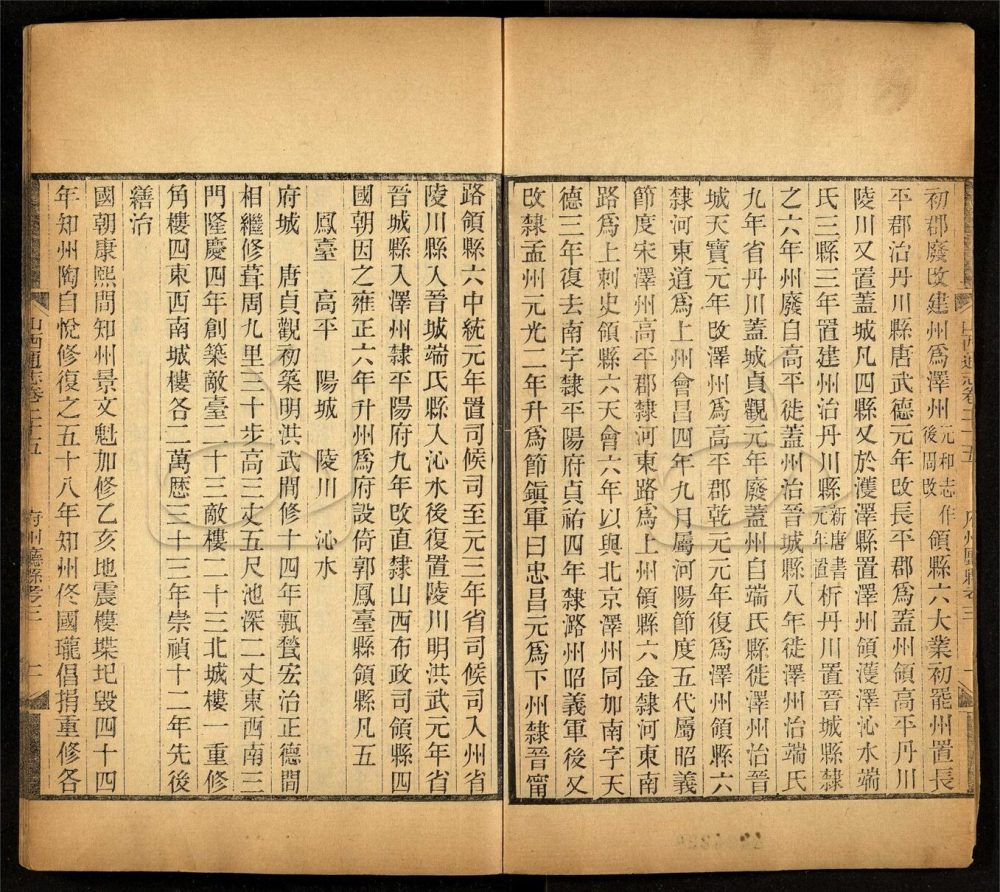 初郡廢改建州爲澤州元和志作後周改領縣六大業初罷州置長
平郡治丹川縣唐武德元年改長平郡爲蓋州領高平丹川
陵川又置蓋城凡四縣又於濩澤縣置澤州領濩澤沁水端
氏三縣三年置建州治丹川縣新唐書元年置析丹川置晉城縣隸
之六年州廢自高平徙蓋州治晉城縣八年徙澤州治端氏
九年省丹川蓋城貞觀元年廢蓋州自端氏縣徙澤州治晉
城天寶元年改澤州爲高平郡乾元元年復爲澤州領縣六
隸河東道爲上州會昌四年九月屬河陽節度五代屬昭義
節度宋澤州高平郡隸河東路爲上州領縣六金隸河東南
路爲上刺史領縣六天會六年以與北京澤州同加南字天
德三年復去南字隸平陽府貞祐四年隸潞州昭義軍後又
改隸孟州元光二年升爲節鎮軍曰忠昌元爲下州隸晉甯
路領縣六中統元年置司候司至元三年省司候司入州省
陵川縣入晉城端氏縣入沁水後復置陵川明洪武元年省
晉城縣入澤州隸平陽府九年改直隸山西布政司領縣四
國朝因之雍正六年升州爲府設倚郭鳳臺縣領縣凡五
鳳臺 高平 陽城 陵川 沁水
府城 唐貞觀初築明洪武閒修十四年甎甃宏治正德閒
相繼修葺周九里三十步高三丈五尺池深二丈東西南三
門隆慶四年創築敵臺二十三敵樓二十三北城樓一重修
角樓四東西南城樓各二萬歷三十三年崇禎十二年先後
繕治
國朝康熙閒知州景文魁加修乙亥地震樓堞圮毀四十四
年知州陶自悅修復之五十八年知州佟國瓏倡捐重修各
山西通志卷二十五 府州廳縣考三 二